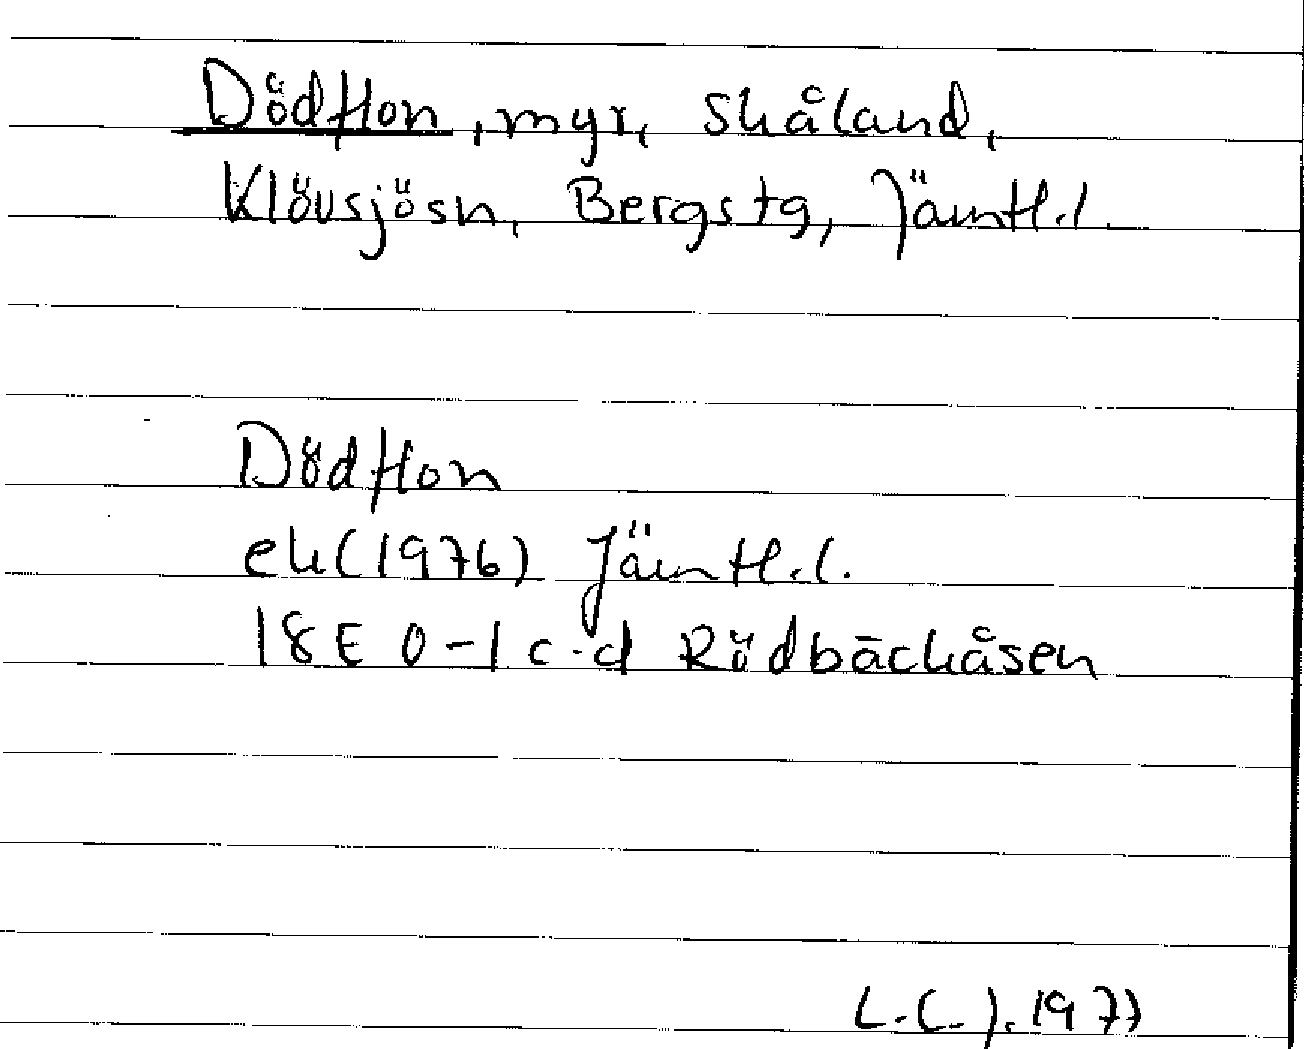 Dödflon, myr, Skåland,
Klövsjösn, Bergstg, Jämtl.l.
Dödflon
ek(1976) Jämtl.l.
18E 0-1 c-d Rödbäckåsen
L.C.J. 1977